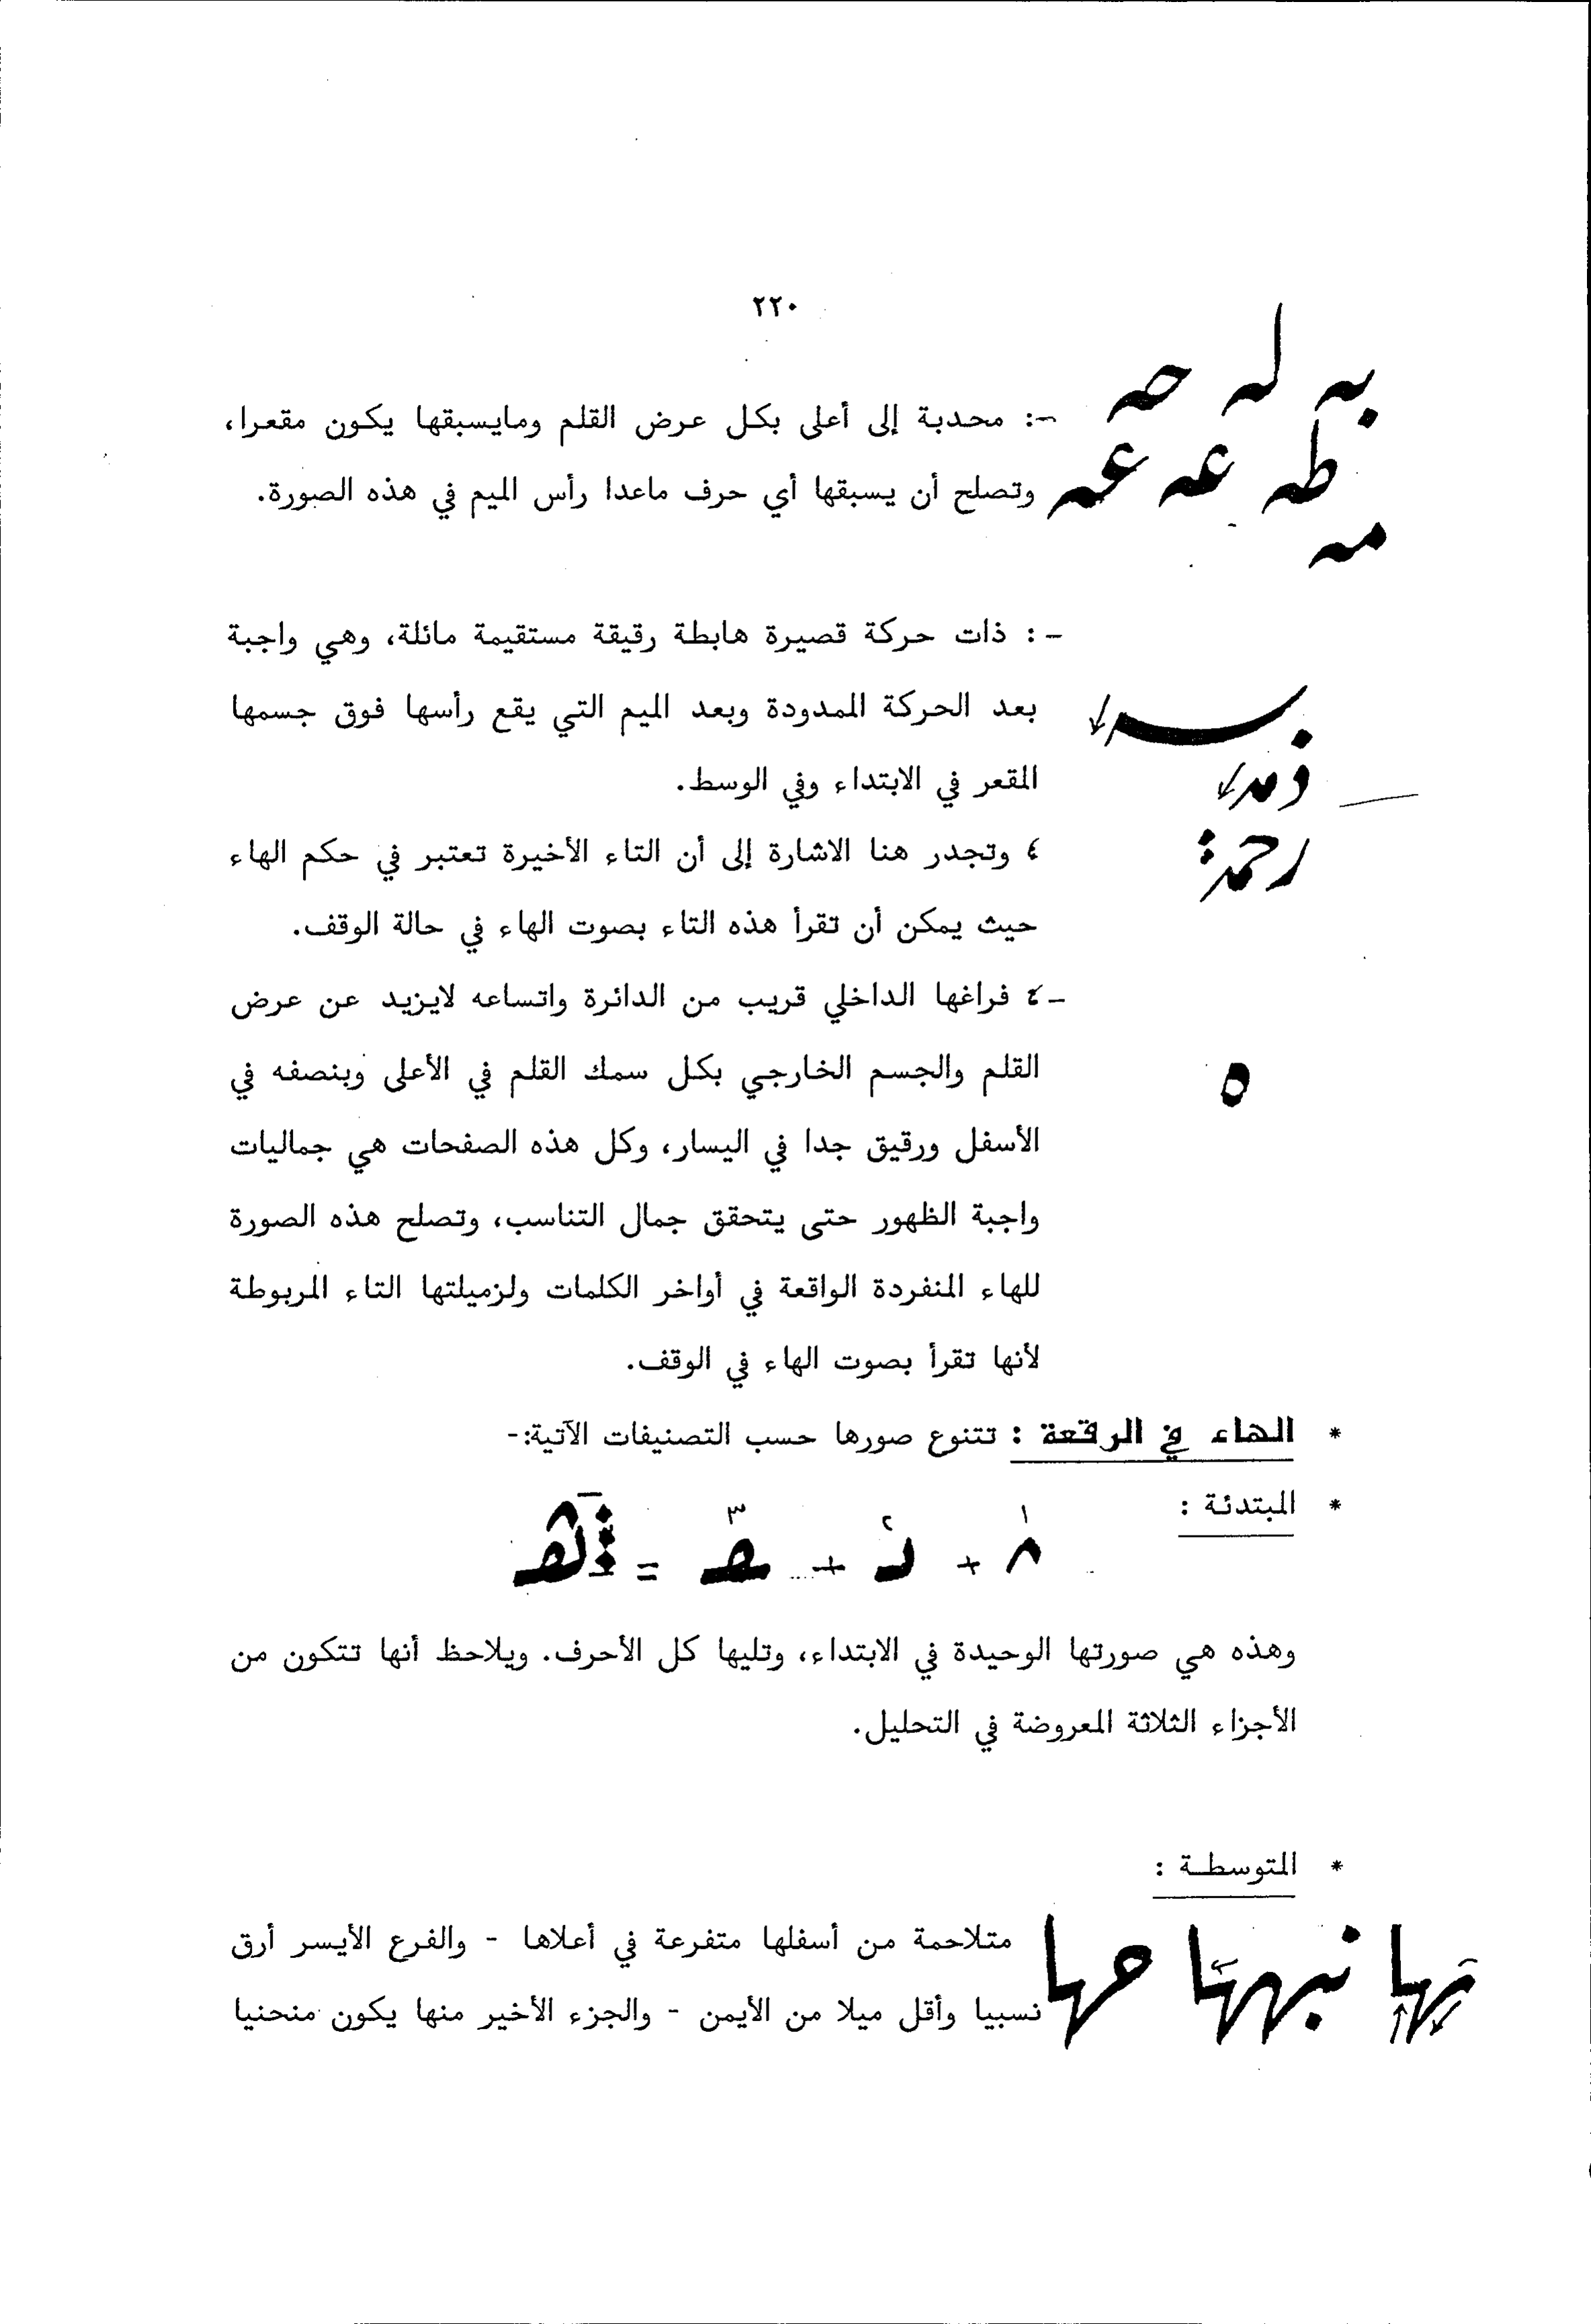 ٢٢٠
به له حه
-: محدبة إلى أعلى بكل عرض القلم ومايسبقها يكون مقعرا،
طه عه عه
وتصلح أن يسبقها أي حرف ماعدا رأس الميم في هذه الصورة.
مه
- : ذات حركة قصيرة هابطة رقيقة مستقيمة مائلة، وهي واجبة
بعد الحركة الممدودة وبعد الميم التي يقع رأسها فوق جسمها
المقعر في الابتداء وفي الوسط.
؛ وتجدر هنا الاشارة إلى أن التاء الأخيرة تعتبر في حكم الهاء
رحمة
حيث يمكن أن تقرأ هذه التاء بصوت الهاء في حالة الوقف.
-؛ فراغها الداخلي قريب من الدائرة واتساعه لايزيد عن عرض
القلم والجسم الخارجي بكل سمك القلم في الأعلى وبنصفه في
ه
الأسفل ورقيق جدا في اليسار، وكل هذه الصفحات هي جماليات
واجبة الظهور حتى يتحقق جمال التناسب، وتصلح هذه الصورة
للهاء المنفردة الواقعة في أواخر الكلمات ولزميلتها التاء المربوطة
لأنها تقرأ بصوت الهاء في الوقف.
* الهاء في الرقعة : تتنوع صورها حسب التصنيفات الآتية:-
* المبتدئة :
١ + ٢ + ٣ =
وهذه هي صورتها الوحيدة في الابتداء، وتليها كل الأحرف. ويلاحظ أنها تتكون من
الأجزاء الثلاثة المعروضة في التحليل.
* المتوسطة :
متلاحمة من أسفلها متفرعة في أعلاها - والفرع الأيسر أرق
نسبيا وأقل ميلا من الأيمن - والجزء الأخير منها يكون منحنيا